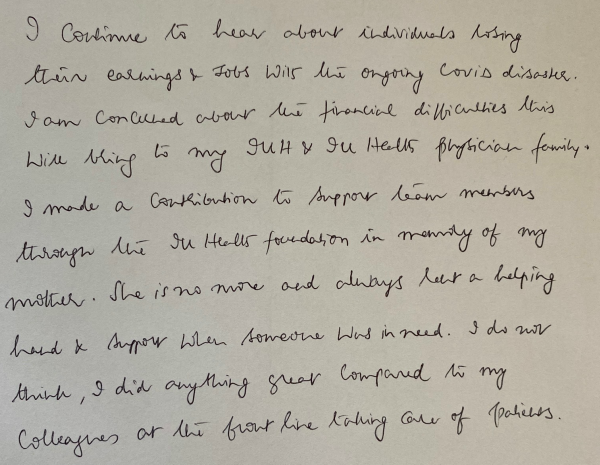 I Continue to hear about individuals losing
their earnings & Jobs With the ongoing Covid disaster.
I am Concerned about the financial difficulties this
Will bring to my IUH & IU Health physician family.
I made a Contribution to support team members
through the IU Health foundation in memory of my
mother. She is no more and always lent a helping
hand & support when someone was in need. I do not
think, I did anything great Compared to my
Colleagues at the front line taking care of patients.